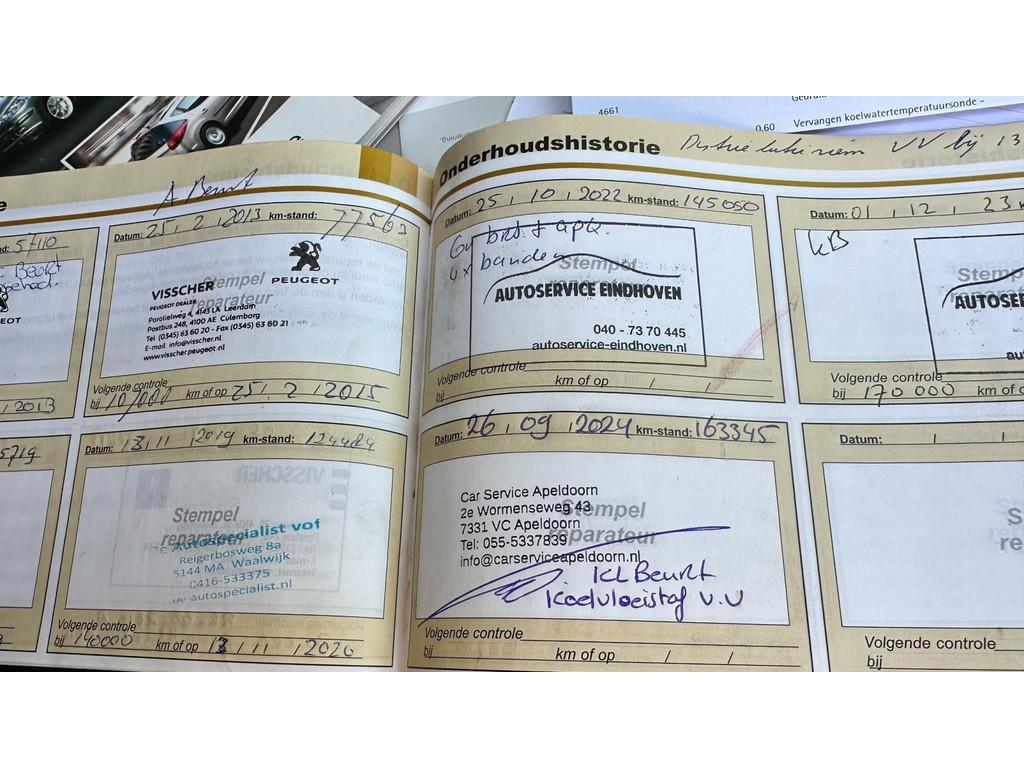 4661
0.60 Vervangen koelwatertemperatuursonde -
Onderhoudshistorie
VV bij 13
A Beurt
57110
Beurt
EOT
2013
Datum: 25 , 2 , 2013 km-stand: 77563
PEUGEOT
Stempel
reparateur
VISSCHER
PEUGEOT DEALER
Parallelweg 4, 4143 LA Leerdam
Postbus 248, 4100 AE Culemborg
Tel (0345) 63 60 20 - Fax (0345) 63 60 21
E-mail info@visscher.nl
www.visscherpeugeot.nl
Volgende controle
bij 107000 km of op 25 , 2 , 2015
5719
Datum: 13 , 11 , 2019 km-stand: 124484
Stempel
reparateur
Autospecialist vof
Reigerbosweg 8a
5144 MA Waalwijk
0416-533375
autospecialist.nl
Volgende controle
bij 140000 km of op 13 , 11 , 2020
Datum: 25 , 10 , 2022 km-stand: 145050
Gr brt + apk.
4x banden
Stempel
AUTOSERVICE EINDHOVEN
040 - 73 70 445
autoservice-eindhoven.nl
Volgende controle
bij km of op / /
Datum: 01 , 12 , 23
KB
Stempel
AUTOSER
Volgende controle
bij 170 000 km of o
Datum: 26 , 09 , 2024 km-stand: 163345
Car Service Apeldoorn
2e Wormenseweg 43
7331 VC Apeldoorn
Tel: 055-5337839
info@carserviceapeldoorn.nl
Stempel
reparateur
Kl Beurt
Koelvloeistof v.v
Volgende controle
bij km of op / /
Datum: / /
S
re
Volgende controle
bij